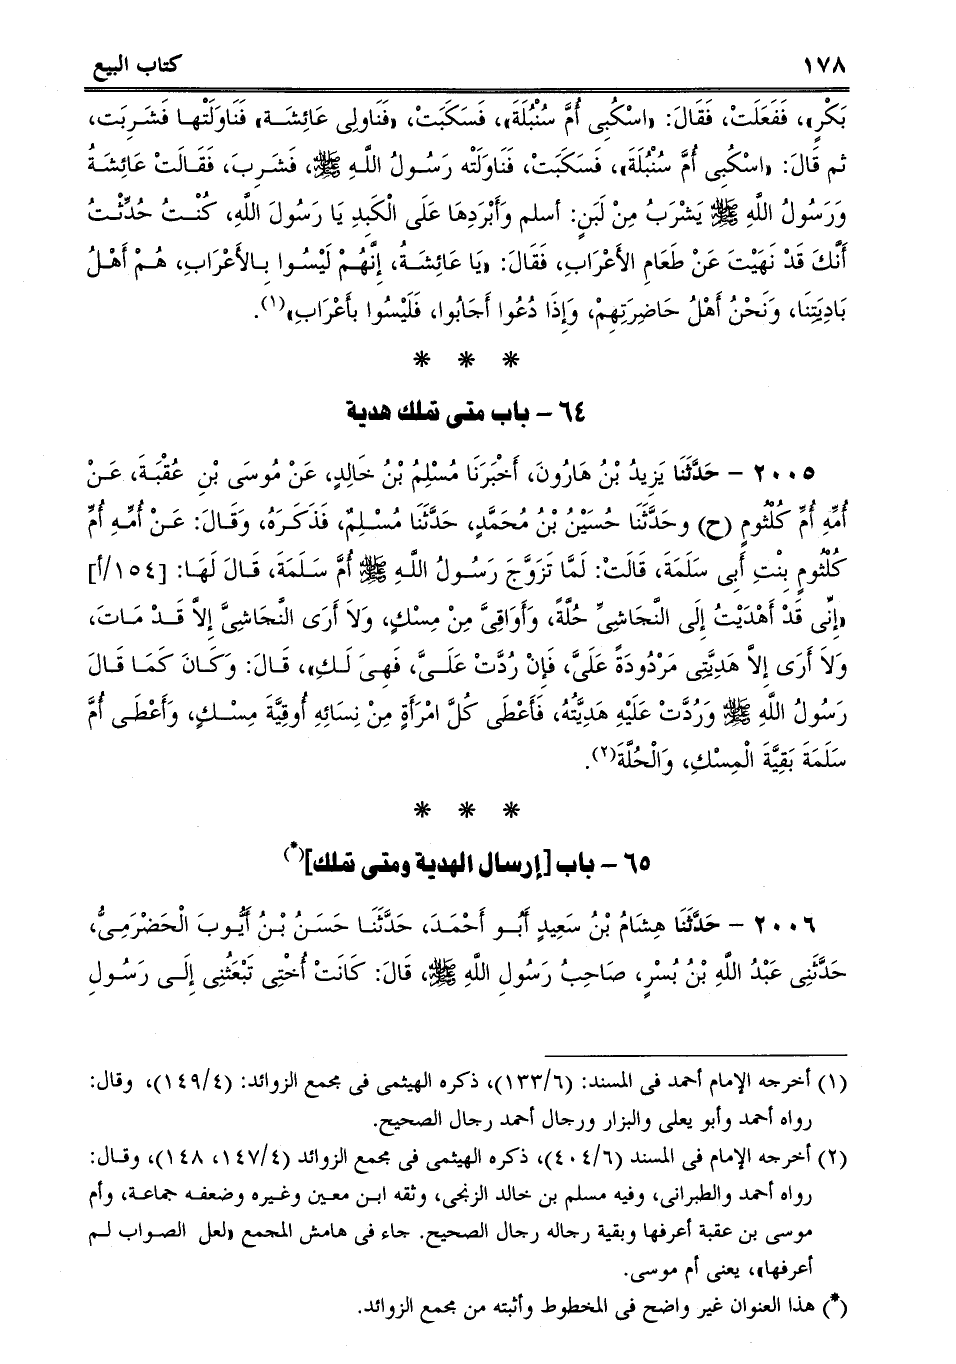 ١٧٨ كتاب البيع
بَكْرٍ»، فَفَعَلَتْ، فَقَالَ: «اسْكُبِى أُمَّ سُنْبُلَةَ»، فَسَكَبَتْ، «فَنَاوِلِى عَائِشَةَ» فَنَاوَلَتْها فَشَرِبَت،
ثم قَالَ: «اسْكُبِى أُمَّ سُنْبُلَةَ»، فَسَكَبَتْ، فَنَاوَلَتْه رَسُولُ اللَّهِ ﷺ، فَشَرِبَ، فَقَالَتْ عَائِشَةُ
وَرَسُولُ اللَّهِ ﷺ يَشْرَبُ مِنْ لَبَنِ: أسلم وَأَبْرَدِهَا عَلَى الْكَبِدِ يَا رَسُولَ اللَّهِ، كُنْتُ حُدِّثْتُ
أَنَّكَ قَدْ نَهَيْتَ عَنْ طَعَامِ الأَعْرَابِ، فَقَالَ: «يَا عَائِشَةُ، إِنَّهُمْ لَيْسُوا بِالأَعْرَابِ، هُمْ أَهْلُ
بَادِيَتِنَا، وَنَحْنُ أَهْلُ حَاضِرَتِهِمْ، وَإِذَا دُعُوا أَجَابُوا، فَلَيْسُوا بِأَعْرَابِ»(١).
* * *
٦٤ – باب متى تملك هدية
٢٠٠٥ – حَدَّثَنَا يَزِيدُ بْنُ هَارُونَ، أَخْبَرَنَا مُسْلِمُ بْنُ خَالِدٍ، عَنْ مُوسَى بْنِ عُقْبَةَ، عَنْ
أُمِّهِ أُمِّ كُلْثُومٍ (ح) وحَدَّثَنَا حُسَيْنُ بْنُ مُحَمَّدٍ، حَدَّثَنَا مُسْلِمٌ، فَذَكَرَهُ، وَقَالَ: عَنْ أُمِّهِ أُمِّ
كُلْثُومٍ بِنْتِ أَبِى سَلَمَةَ، قَالَتْ: لَمَّا تَزَوَّجَ رَسُولُ اللَّهِ ﷺ أُمَّ سَلَمَةَ، قَالَ لَهَا: [١٥٤/أ]
«إِنِّى قَدْ أَهْدَيْتُ إِلَى النَّجَاشِىِّ حُلَّةً، وَأَوَاقِىَّ مِنْ مِسْكٍ، وَلاَ أَرَى النَّجَاشِىَّ إِلاَّ قَدْ مَاتَ،
وَلاَ أَرَى إِلاَّ هَدِيَّتِى مَرْدُودَةً عَلَىَّ، فَإِنْ رُدَّتْ عَلَىَّ، فَهِىَ لَكِ»، قَالَ: وَكَانَ كَمَا قَالَ
رَسُولُ اللَّهِ ﷺ وَرُدَّتْ عَلَيْهِ هَدِيَّتُهُ، فَأَعْطَى كُلَّ امْرَأَةٍ مِنْ نِسَائِهِ أُوقِيَّةَ مِسْكٍ، وَأَعْطَى أُمَّ
سَلَمَةَ بَقِيَّةَ الْمِسْكِ، وَالْحُلَّةَ(٢).
* * *
٦٥ – باب [إرسال الهدية ومتى تملك](*)
٢٠٠٦ – حَدَّثَنَا هِشَامُ بْنُ سَعِيدٍ أَبُو أَحْمَدَ، حَدَّثَنَا حَسَنُ بْنُ أَيُّوبَ الْحَضْرَمِىُّ،
حَدَّثَنِى عَبْدُ اللَّهِ بْنُ بُسْرٍ، صَاحِبُ رَسُولِ اللَّهِ ﷺ، قَالَ: كَانَتْ أُخْتِى تَبْعَثُنِى إِلَى رَسُولِ
(١) أخرجه الإمام أحمد فى المسند: (١٣٣/٦)، ذكره الهيثمى فى مجمع الزوائد: (١٤٩/٤)، وقال:
رواه أحمد وأبو يعلى والبزار ورجال أحمد رجال الصحيح.
(٢) أخرجه الإمام فى المسند (٤٠٤/٦)، ذكره الهيثمى فى مجمع الزوائد (١٤٧/٤، ١٤٨)، وقال:
رواه أحمد والطبرانى، وفيه مسلم بن خالد الزنجى، وثقه ابن معين وغيره وضعفه جماعة، وأم
موسى بن عقبة أعرفها وبقية رجاله رجال الصحيح. جاء فى هامش المجمع «لعل الصواب لم
أعرفها»، يعنى أم موسى.
(*) هذا العنوان غير واضح فى المخطوط وأثبته من مجمع الزوائد.